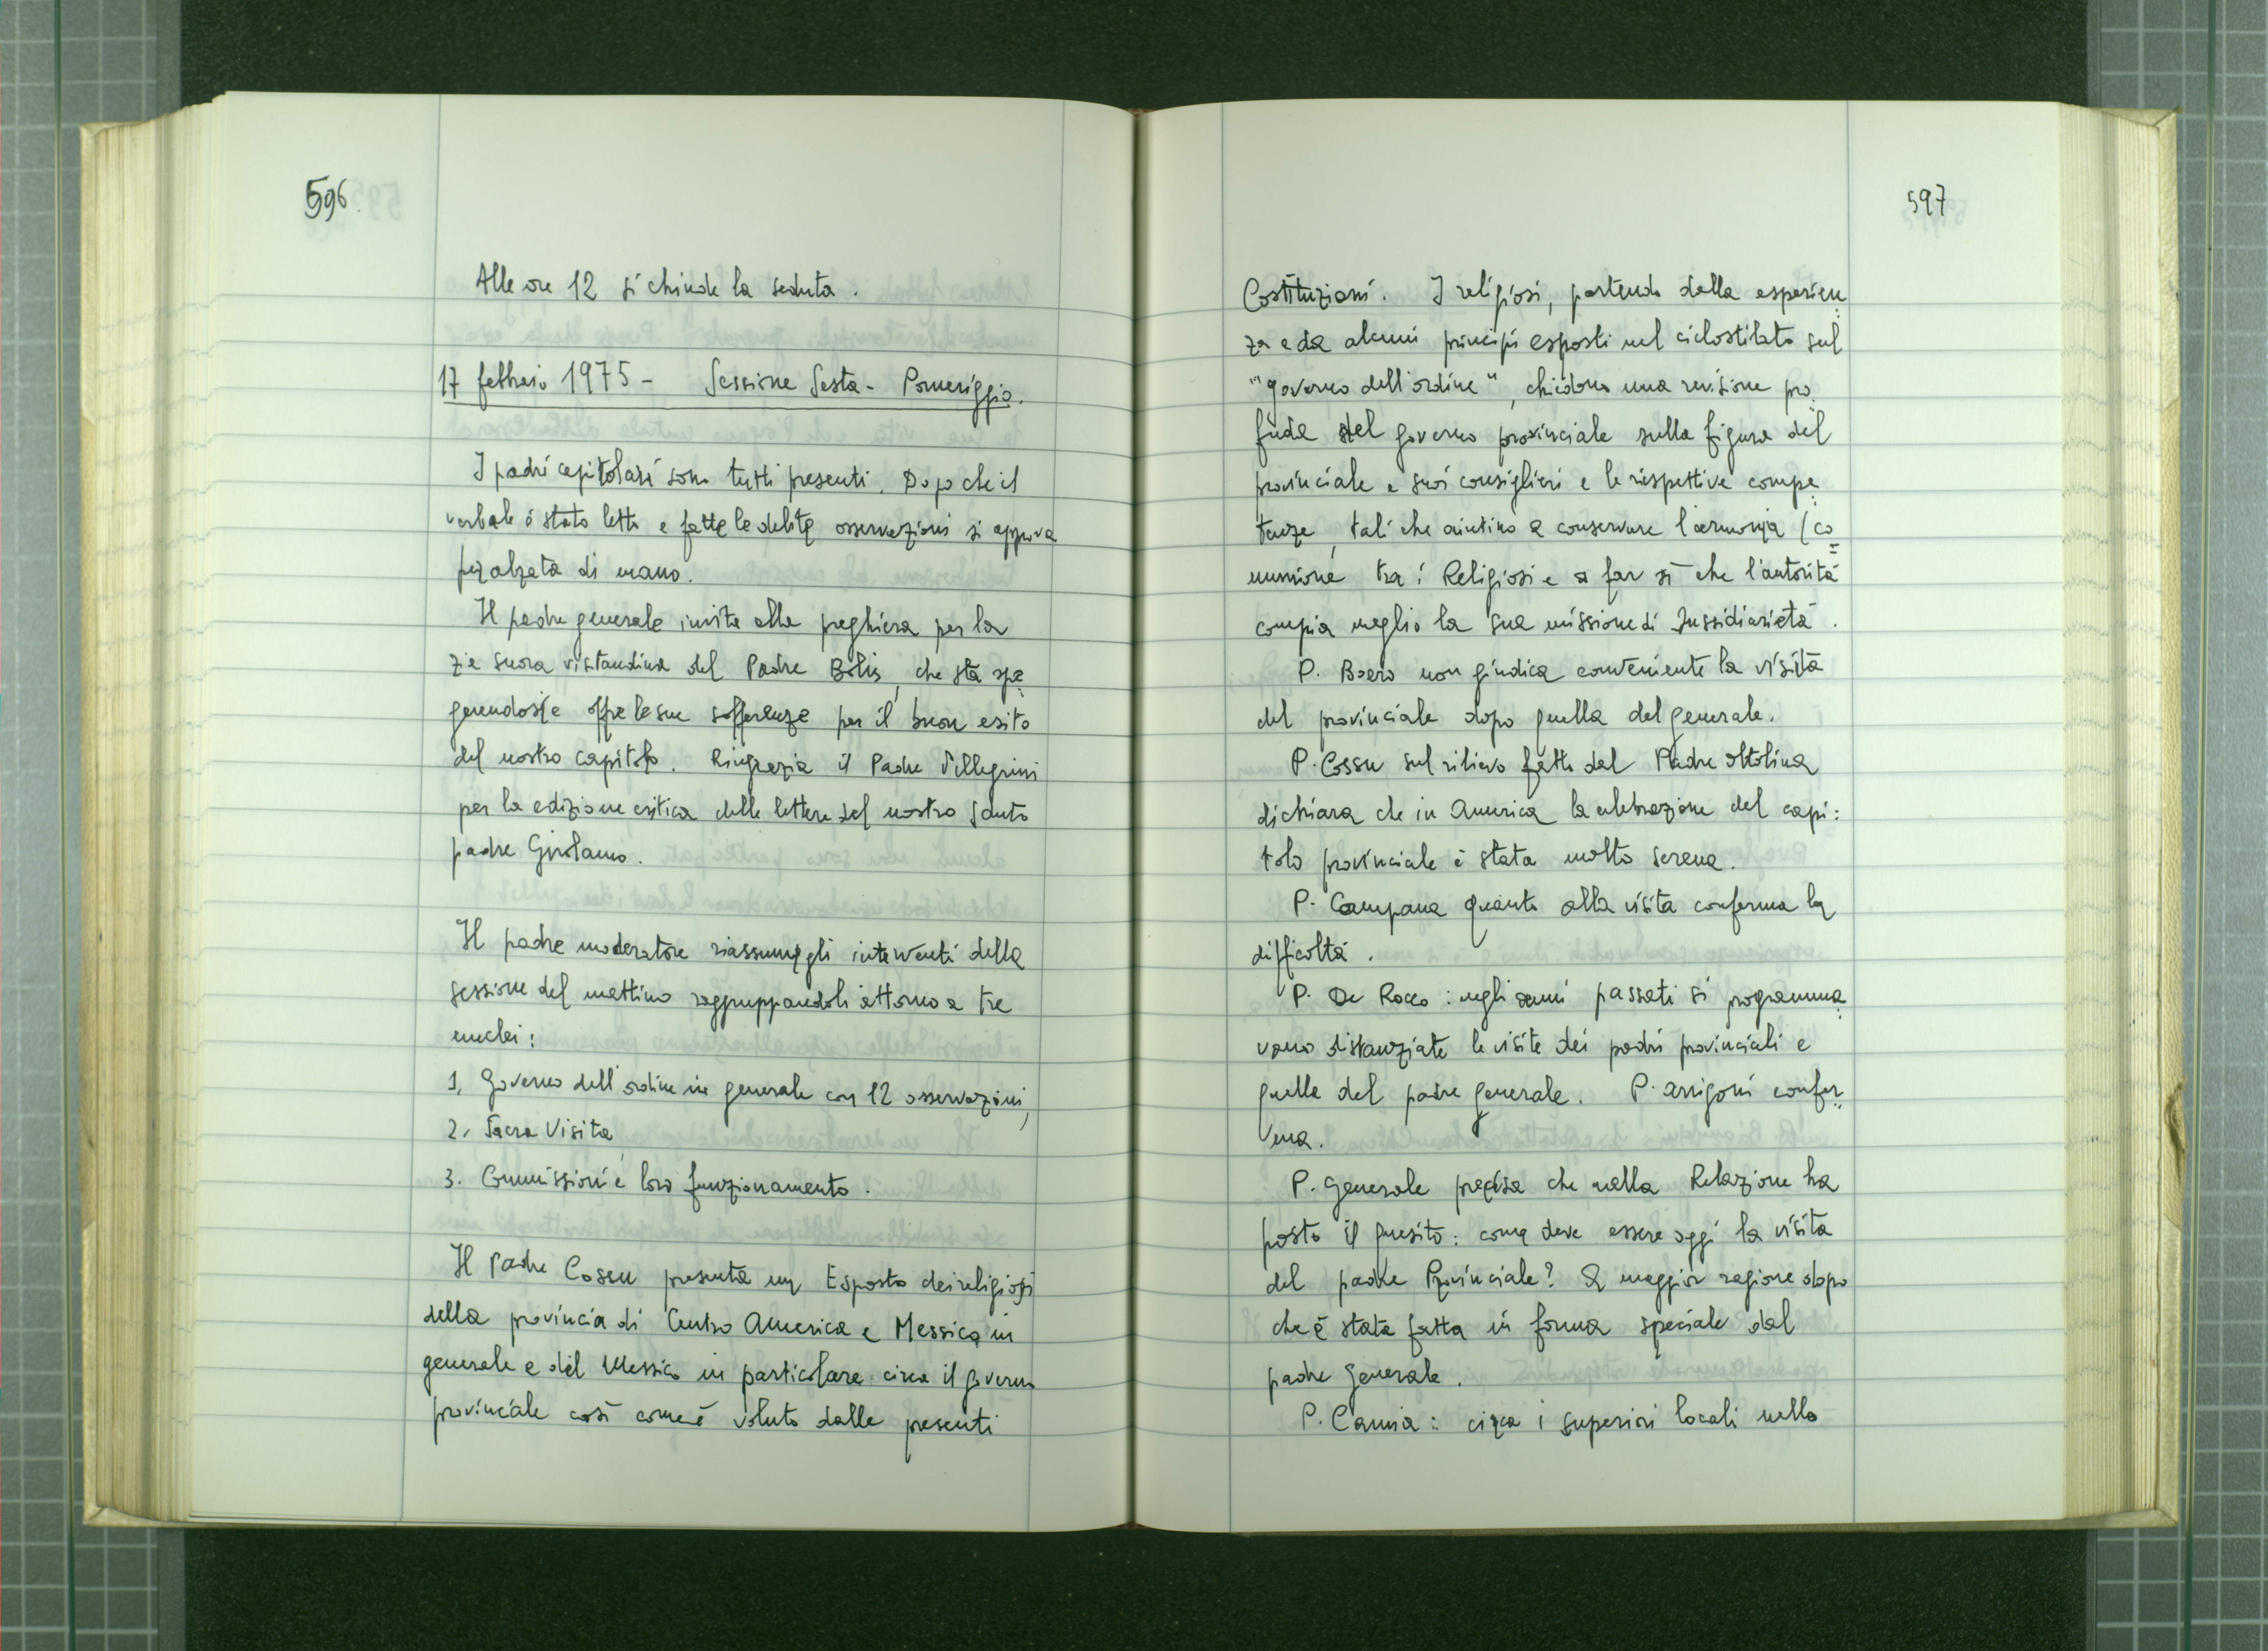 596.
Alle ore 12 si chiude la seduta.
17 febbraio 1975 - Sessione Sesta - Pomeriggio.
I padri capitolari sono tutti presenti. Dopo che il
verbale è stato letto e fatte le debite osservazioni si approva
per alzata di mano.
Il padre generale invita alla preghiera per la
zia suora visitandina del Padre Bolis, che sta spe
gnendosi e offre le sue sofferenze per il buon esito
del nostro capitolo. Ringrazia il Padre Pellegrini
per la edizione critica delle lettere del nostro Santo
padre Girolamo.
Il padre moderatore riassume gli interventi della
sessione del mattino raggruppandoli attorno a tre
nuclei:
1. Governo dell'ordine in generale con 12 osservazioni,
2. Sacra Visita,
3. Commissioni e loro funzionamento.
Il Padre Cossu presenta un Esposto dei religiosi
della provincia di Centro America e Messico in
generale e del Messico in particolare circa il governo
provinciale così come è voluto dalle presenti
597
Costituzioni. I religiosi, partendo dalla esperien
za e da alcuni principi esposti nel ciclostilato sul
"governo dell'ordine", chiedono una revisione pro
fuda del governo provinciale sulla figura del
provinciale e suoi consiglieri e le rispettive compe
tenze, tali che aiutino a conservare l'armonia (co=
munione tra i Religiosi e a far sì che l'autorità
compia meglio la sua missione di sussidiarietà.
P. Boero non giudica conveniente la visita
del provinciale dopo quella del generale.
P. Cossu sul rilievo fatto dal Padre Ottolina
dichiara che in America la celebrazione del capi:
tolo provinciale è stata molto serena.
P. Campana quanto alla visita conferma la
difficoltà.
P. De Rocco: negli anni passati si programma
vano distanziate le visite dei padri provinciali e
quella del padre generale. P. Arrigoni confer
ma.
P. Generale precisa che nella Relazione ha
posto il quesito: come deve essere oggi la visita
del padre Provinciale? A maggior ragione dopo
che è stata fatta in forma speciale dal
padre Generale.
P. Camia: circa i superiori locali nella